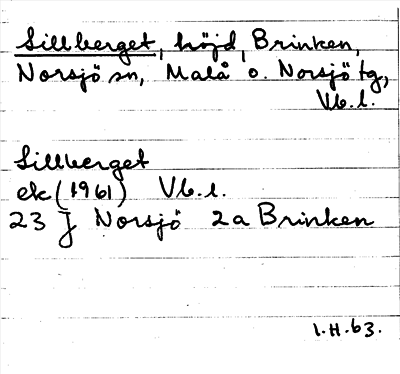 Sillberget, höjd, Brinken,
Norsjö sn, Malå o. Norsjö tg,
Vb. l.
Sillberget
ek (1961) Vb. l.
23 J Norsjö 2a Brinken
I.H. 63.